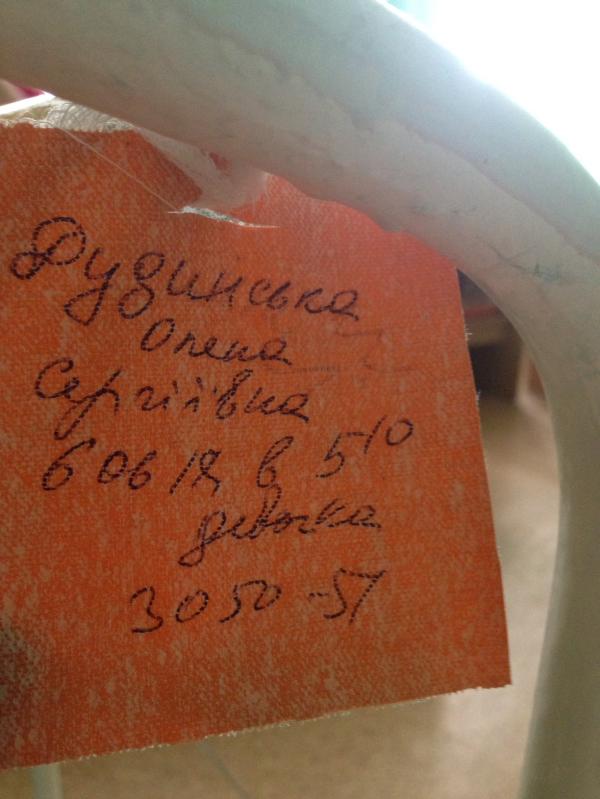 Дудинська
Олена
Сергіївна
6 06 18 в 5 10
девочка
3050 - 51